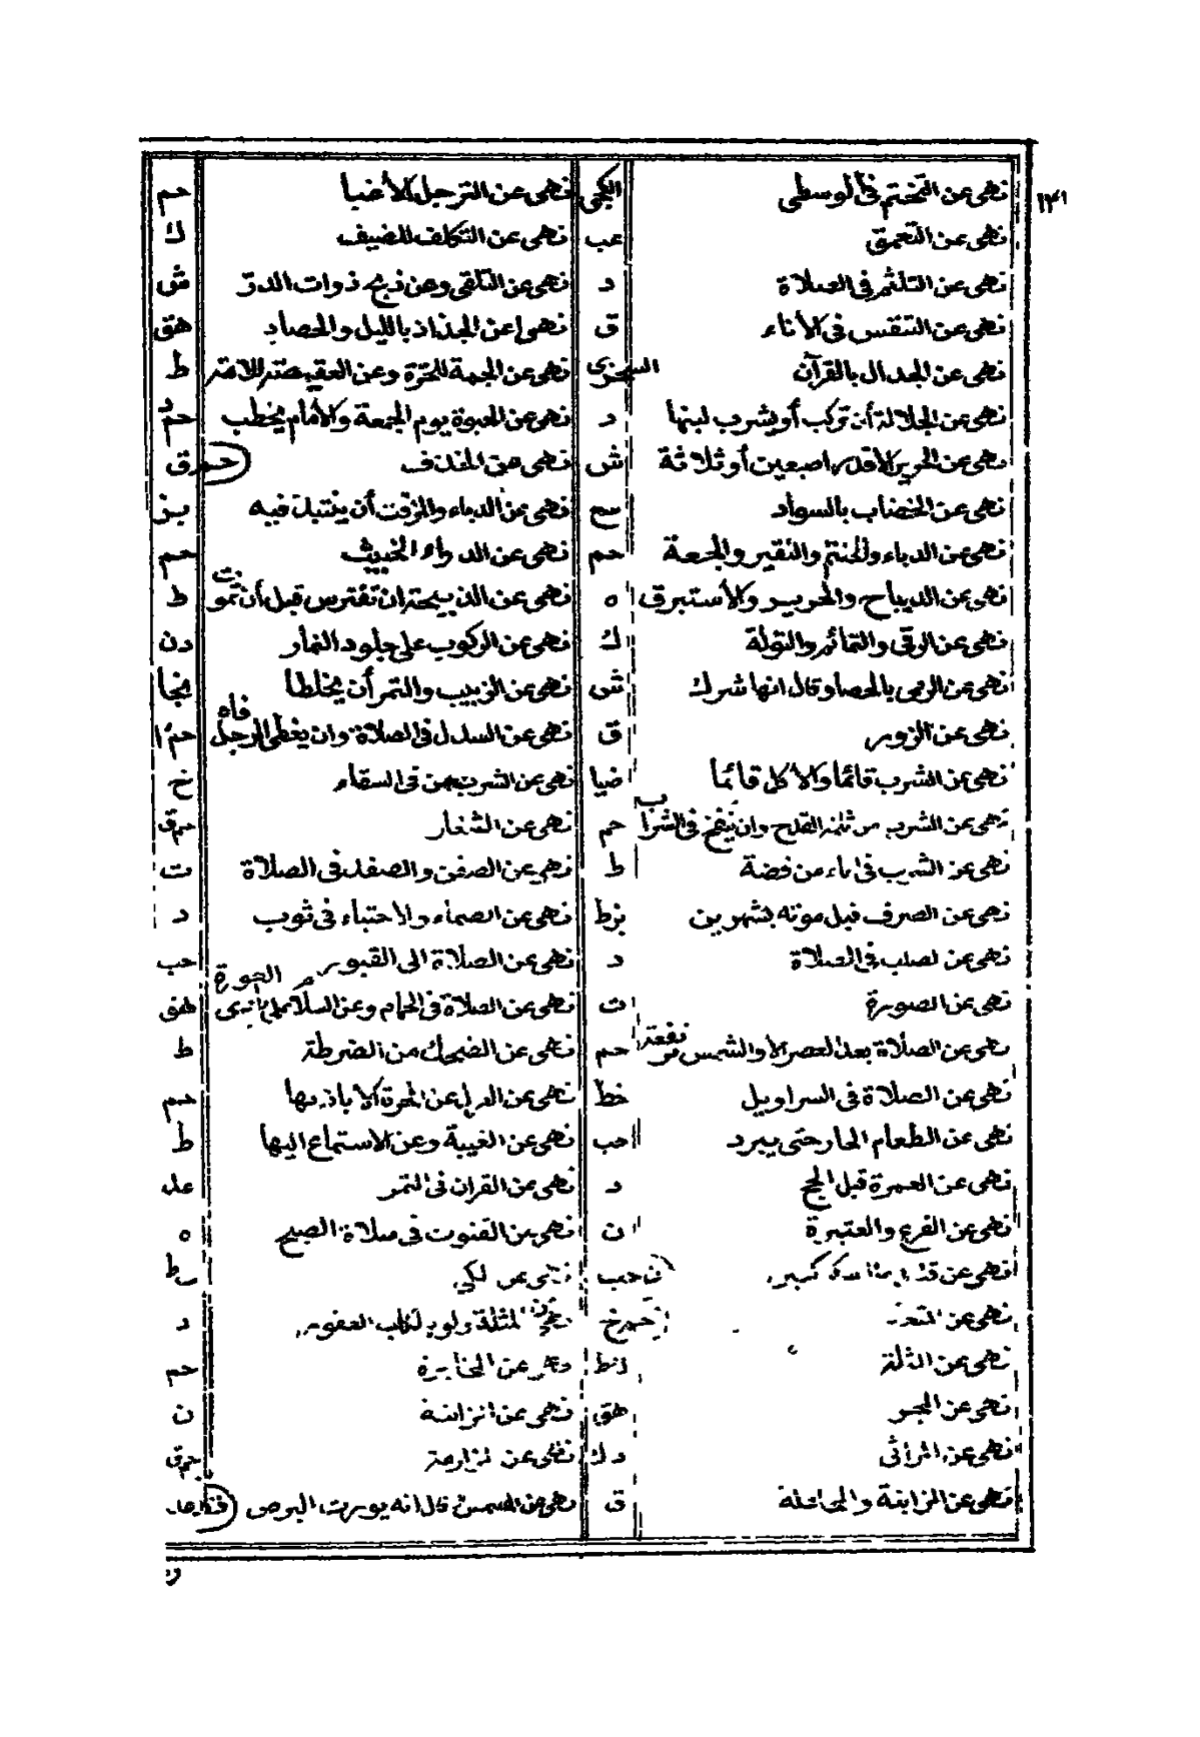 ١٣١
نهى عن التختم في الوسطى الكجى نهى عن الترجل الا غبا حم
نهى عن التعمق عب نهى عن التكلف للضيف ك
نهى عن التلثم في الصلاة د نهى عن التلقى وعن ذبح ذوات الدر ش
نهى عن التنفس في الأناء ق نهى عن الجذاذ بالليل والحصاد هق
نهى عن الجدال بالقرآن السجزى نهى عن الجمة للحرة وعن العقيصة للامة ط
نهى عن الجلالة أن تركب أو يشرب لبنها د نهى عن الحبوة يوم الجمعة والأمام يخطب حم د
نهى عن الحرير الا قدر اصبعين أو ثلاثة ش نهى عن الخذف (حم ق
نهى عن الخضاب بالسواد سع نهى عن الدباء والمزفت أن ينتبذ فيه بز
نهى عن الدباء والحنتم والنقير والجعة حم نهى عن الدواء الخبيث حم
نهى عن الديباج والحرير والأستبرق ه نهى عن الذبيحة ان تفترس قبل أن تموت ط
نهى عن الرقى والتمائم والتولة ك نهى عن الركوب على جلود النمار د ن
نهى عن الرمى بالحصا وقال انها شرك ش نهى عن الزبيب والتمر أن يخلطا
نهى عن الزور ق نهى عن السدل في الصلاة وان يغطى الرجل فاه
نهى عن الشرب قائما والأكل قائما ضيا نهى عن الشرب من في السقاء خ
نهى عن الشرب من ثلمة القدح وان ينفخ في الشراب حم نهى عن الشغار حم ق
نهى عن الشرب في اناء من فضة ط نهى عن الصفن والصفد في الصلاة ت
نهى عن الصرف قبل موته بشهرين بز ط نهى عن الصماء والاحتباء في ثوب د
نهى عن لصلب في الصلاة د نهى عن الصلاة الى القبور حب
نهى عن الصورة ت نهى عن الصلاة في الحمام وعن السلام على بادى العورة هق
نهى عن الصلاة بعد العصر الا والشمس مرتفعة حم نهى عن الضحك من الضرطة ط
نهى عن الصلاة في السراويل خط نهى عن العزل عن الحرة الا باذنها حم
نهى عن الطعام الحار حتى يبرد حب نهى عن الغيبة وعن الاستماع اليها ط
نهى عن العمرة قبل الحج د نهى عن القران في التمر
نهى عن الفرع والعتيرة ن نهى عن القنوت في صلاة الصبح ه
نهى عن حب نهى عن لكي ط
نهى عن حم خ المثلة ولو بالكلب العقور د
نهى عن عن المخابرة حم
نهى عن المجر هق نهى عن المزابنة ن
نهى عن المراثى د ك نهى عن المزارعة حم ق
نهى عن المزابنة والمحاقلة ق نهى عن المشمس قال انه يورث البرص